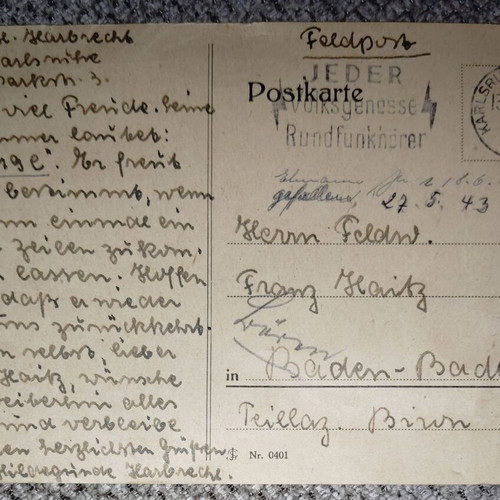 Harbrecht
arlsruhe
arkstr. 3.
viel Freude. Seine
mmer lautet:
Er freut
bestimmt, wenn
nn einmal ein
Zeilen zukom,
lassen. Hoffen
daß er wieder
uns zurückkehrt.
n selbst, lieber
Haitz, wünsche
weiterhin alles
und verbleibe
en herzlichsten Grüßen
Hildegunde Harbrecht.
Feldpost
JEDER
Volksgenosse
Rundfunkhörer
Postkarte
KARLSR
gefallen, 27. 5. 43
Herrn Feldw.
Franz Haitz
in Baden-Bade
Teillaz. Biron
Nr. 0401